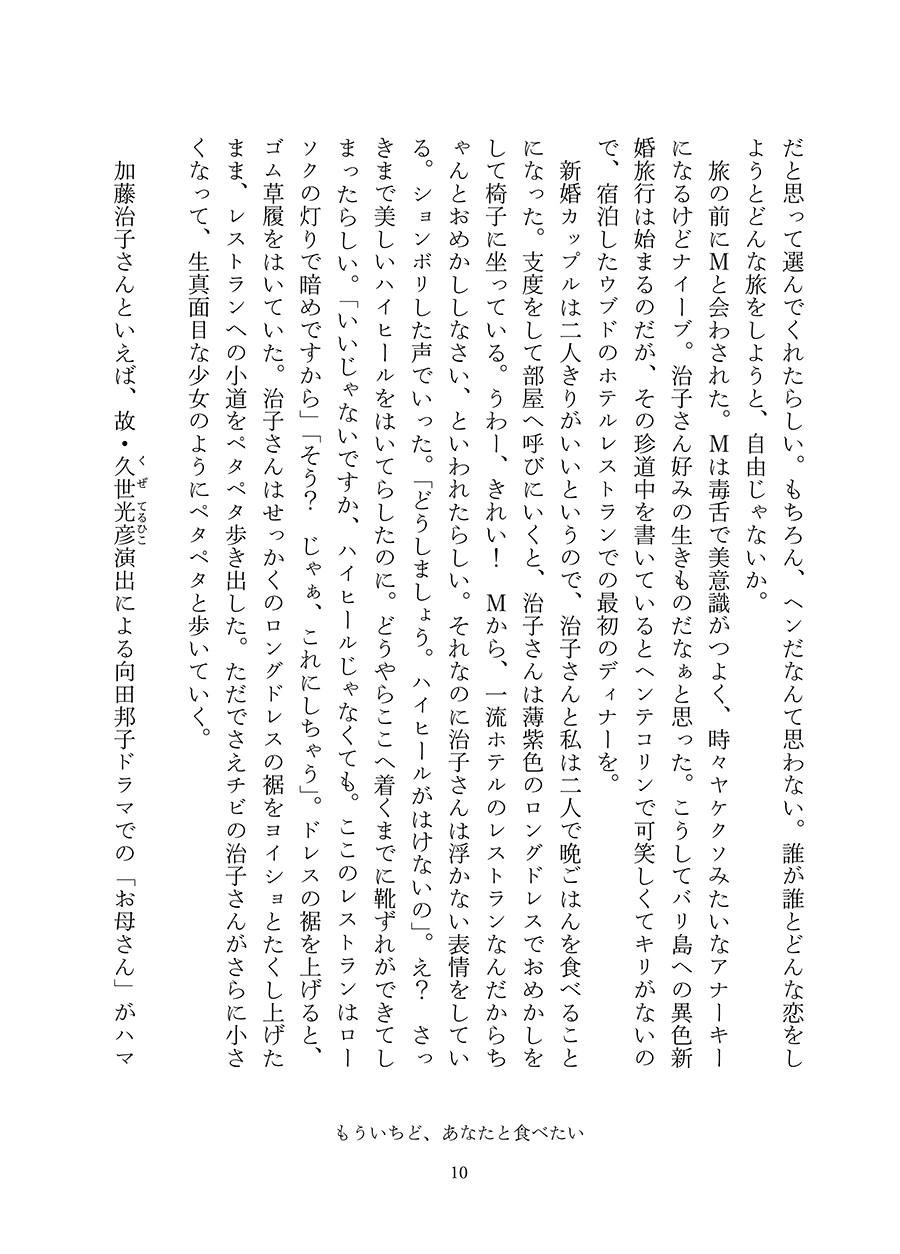 だと思って選んでくれたらしい。もちろん、ヘンだなんて思わない。誰が誰とどんな恋をし
ようとどんな旅をしようと、自由じゃないか。
旅の前にMと会わされた。Mは毒舌で美意識がつよく、時々ヤケクソみたいなアナーキー
になるけどナイーブ。治子さん好みの生きものだなぁと思った。こうしてバリ島への異色新
婚旅行は始まるのだが、その珍道中を書いているとヘンテコリンで可笑しくてキリがないの
で、宿泊したウブドのホテルレストランでの最初のディナーを。
新婚カップルは二人きりがいいというので、治子さんと私は二人で晩ごはんを食べること
になった。支度をして部屋へ呼びにいくと、治子さんは薄紫色のロングドレスでおめかしを
して椅子に坐っている。うわー、きれい！　Mから、一流ホテルのレストランなんだからち
ゃんとおめかししなさい、といわれたらしい。それなのに治子さんは浮かない表情をしてい
る。ションボリした声でいった。「どうしましょう。ハイヒールがはけないの」。え？　さっ
きまで美しいハイヒールをはいてらしたのに。どうやらここへ着くまでに靴ずれができてし
まったらしい。「いいじゃないですか、ハイヒールじゃなくても。ここのレストランはロー
ソクの灯りで暗めですから」「そう？　じゃぁ、これにしちゃう」。ドレスの裾を上げると、
ゴム草履をはいていた。治子さんはせっかくのロングドレスの裾をヨイショとたくし上げた
まま、レストランへの小道をペタペタ歩き出した。ただでさえチビの治子さんがさらに小さ
くなって、生真面目な少女のようにペタペタと歩いていく。
加藤治子さんといえば、故・久世光彦演出による向田邦子ドラマでの「お母さん」がハマ
くぜてるひこ
もういちど、あなたと食べたい
10